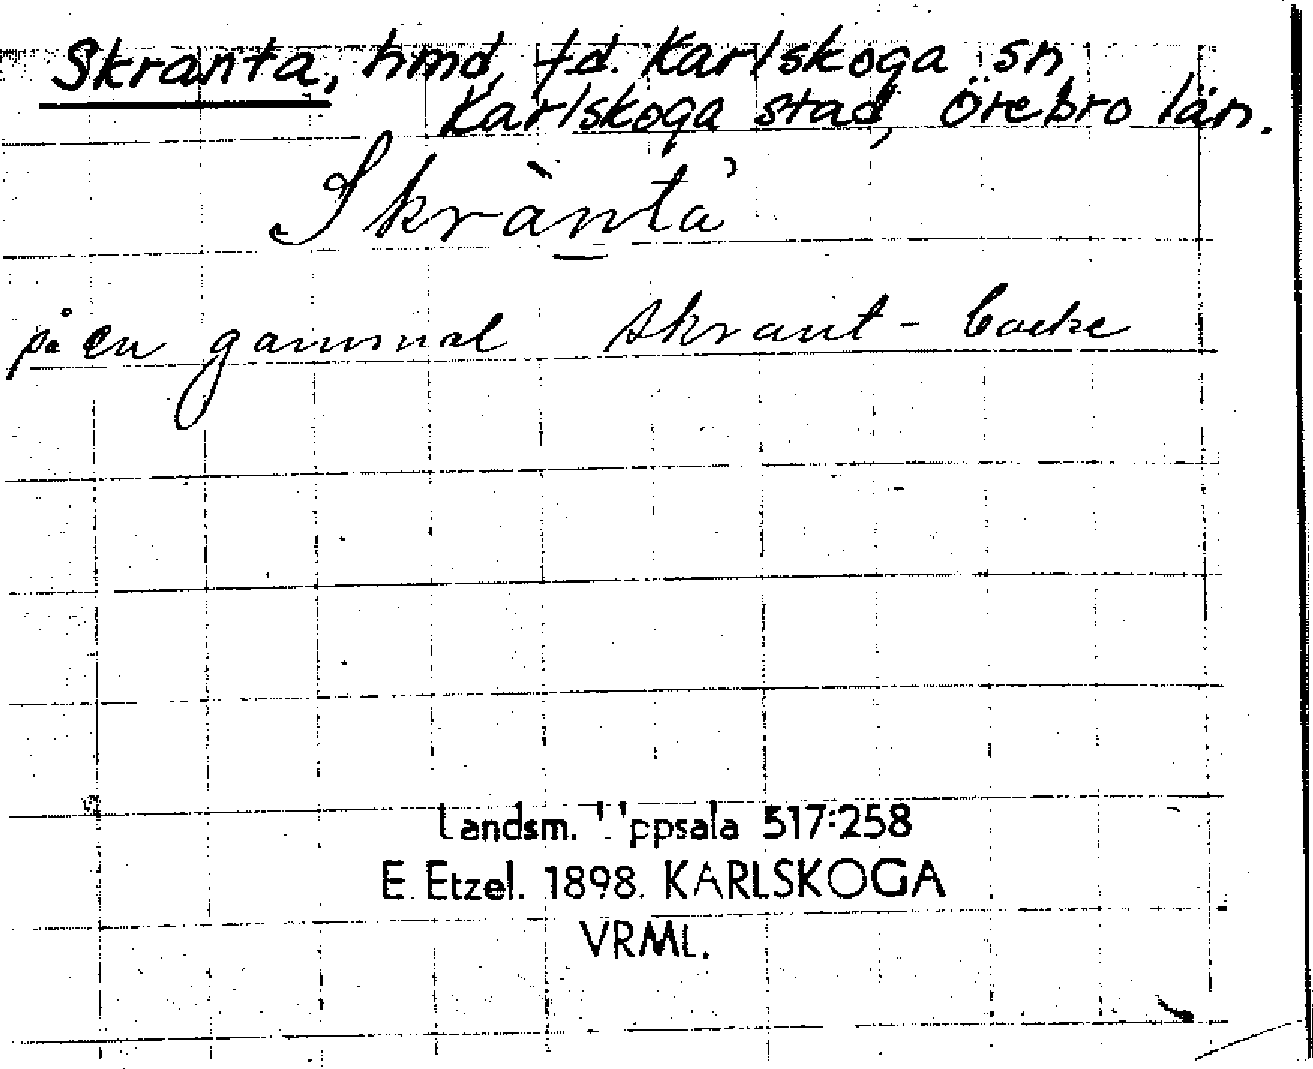 Skranta, hmd, f.d. Karlskoga sn
Karlskoga stad, Örebro län.
Skrànta
på en gammal skrant-backe
Landsm. Uppsala 517:258
E. Etzel. 1898. KARLSKOGA
VRML.